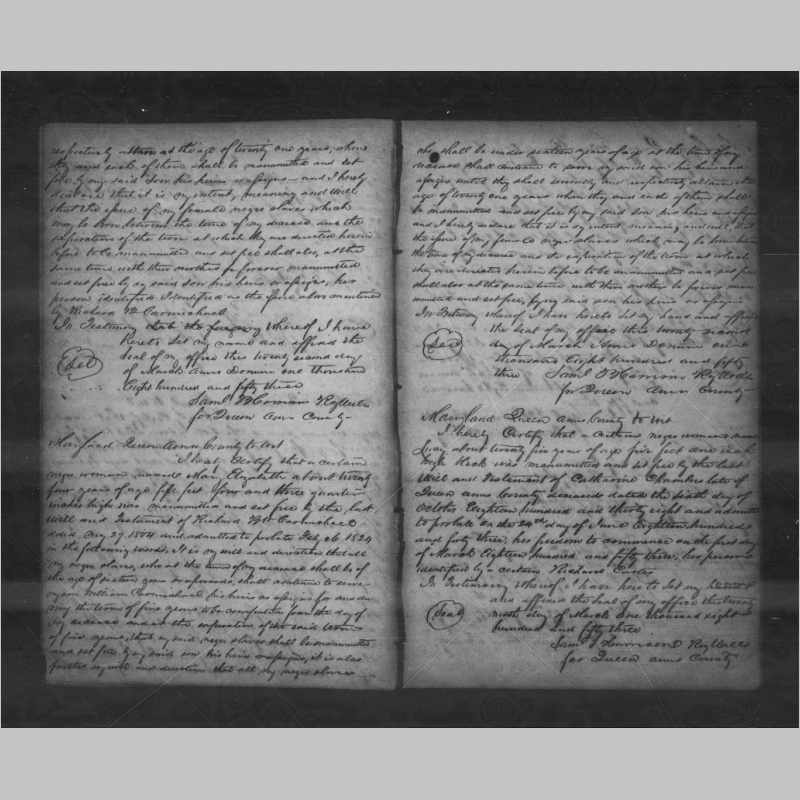 respectively attain at the age of twenty one years, when
they and each of them shall be manumitted and set
free by my said Son his heirs or assigns and I hereby
declare that it is my intent, meaning and Will
that the issue of my female negro slaves which
may be born between the time of my decease and the
expiration of the term at which they are directed herein
before to be manumitted and set free shall also, at the
same time with their mothers be forever manumitted
and set free by my said son his heirs or assigns, her
person identified Identified as the issue above mentioned
by Richard W Carmichael
In Testimony whereof I have
hereto set my name and affixed the
Seal of my office this twenty second day
of March Anno Domini one thousand
Eight hundred and fifty three
Seal
Saml
for Queen Anns County
Maryland Queen Anns County to wit
I hereby Certify that a certain
negro woman named Mary Elizabeth about twenty
four years of age five feet four and three quarter
inches high was manumitted and set free by the last
Will and Testament of Richard Wm Carmichael
dated Aug 27 1824 and admitted to probate Feby 26 1824
in the following words. It is my will and direction that all
my negro slaves, who at the time of my decease shall be of
the age of sixteen years or upwards, shall continue to serve
my son William Carmichael his heirs or assigns for and du-
ring the term of five years to be computed from the day of
my decease and at the expiration of the said term
of five years, that my said negro slaves shall be manumitted
and set free by my said son his heirs or assigns, it is also
further my will and direction that all my negro slaves
who shall be under sixteen years of age at the time of my
decease shall continue to serve my said son his heirs and
assigns until they shall severally and respectively attain the
age of twenty one years when they and each of them shall
be manumitted and set free by my said son his heirs and assigns
and I hereby declare that it is my intent meaning and will that
the issue of my female negro slaves which may be born between
the time of my decease and the expiration of the term at which
they are directed herein before to be manumitted and set free
shall also at the same time with their mother be forever manu-
mitted and set free, by my said son his heirs or assigns
In Testimony whereof I have hereto set my hand and affixed
the seal of my office this twenty second
day of March Anno Domini one
thousand Eight hundred and fifty
three
Seal
Saml
for Queen Anns County
Maryland Queen Anns County to wit
I hereby Certify that a certain negro woman named
Suky about twenty five years of age five feet one inch
high Black was manumitted and set free by the last
Will and Testament of Catharine Chambers late of
Queen Anns County deceased dated the sixth day of
October Eighteen hundred and thirty eight and admitted
to probate on the 24th day of June Eighteen hundred
and forty three; her freedom to commence on the first day
of March Eighteen hundred and fifty three; her person
identified by a certain Richard Carter
In Testimony whereof I have hereto set my
and affixed the Seal of my office this twenty
ninth day of March One thousand eight
hundred and fifty three
Seal
Saml
for Queen Anns County